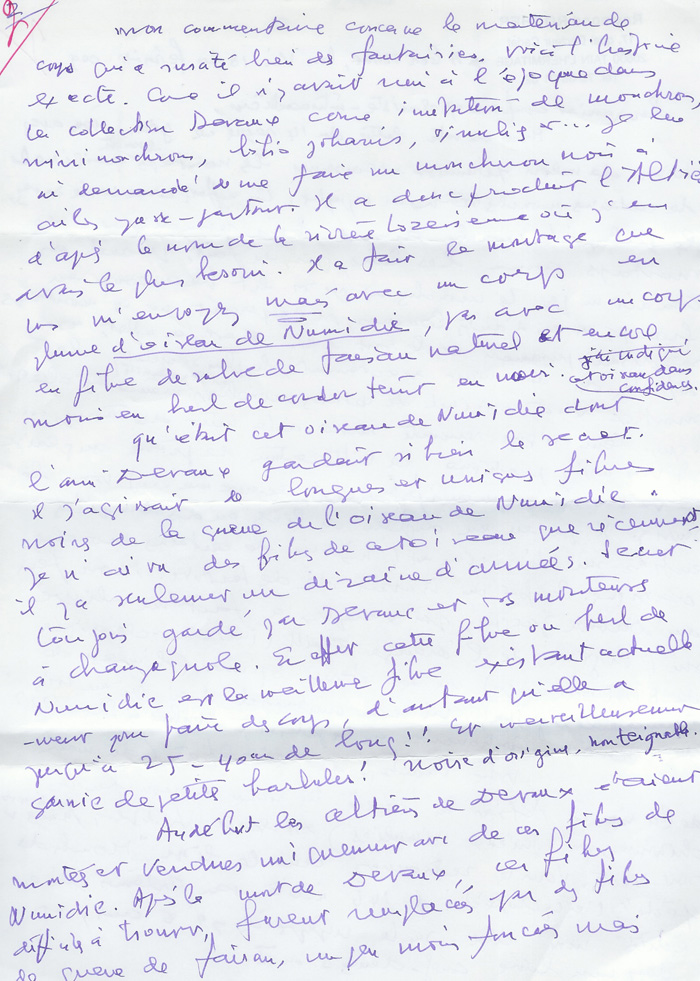 mon commentaire concerne le materiau de
corps qui a suscité bien des fantaisies. Voici l'histoire
exacte. Come il n'y avait rien à l'époque dans
la collection Devaux come imitation de monchrons,
minimonchrons, bibio johanis, simulies et... je lui
ai demandé de me faire un moucheron noir à
ailes passe-partout. Il a donc produit l'Altier
d'après le nom de la rivière Lozerienne où j'en
avais le plus besoin. Il a fait le montage que
vous m'envoyez mais avec un corps en
plume d'oiseau de Numidie, pas avec un corps
en fibre de soluce de faisan naturel et encore
moins en herl de condor teint en noir. j'ai indiqué
cet oiseau dans
confidence.
qu'était cet oiseau de Numidie dont
l'ami Devaux gardait si bien le secret.
Il s'agissait de longues et uniques fibres
noires de la queue de l'oiseau de Numidie.
Je n'ai vu des fibres de cet oiseau que récemment
il y a seulement un dizaine d'années. Secret
toujours gardé, par Devaux et ses monteurs
à champagnole. En effet cette fibre ou herl de
Numidie est la meilleure fibre existant actuelle
-ment pour faire des corps, d'autant qu'elle a
jusqu'à 25 - 40 cm de long!! Et merveilleusement
garnie de petits barbules! Noire d'origine, non teignable.
Au début les altiers de Devaux étaient
montés et vendues uniquement avec de ces fibres de
Numidie. Après la mort de Devaux, ces fibres
difficiles à trouver, furent remplacés par des fibres
de queue de faisan, un peu moins foncées mais